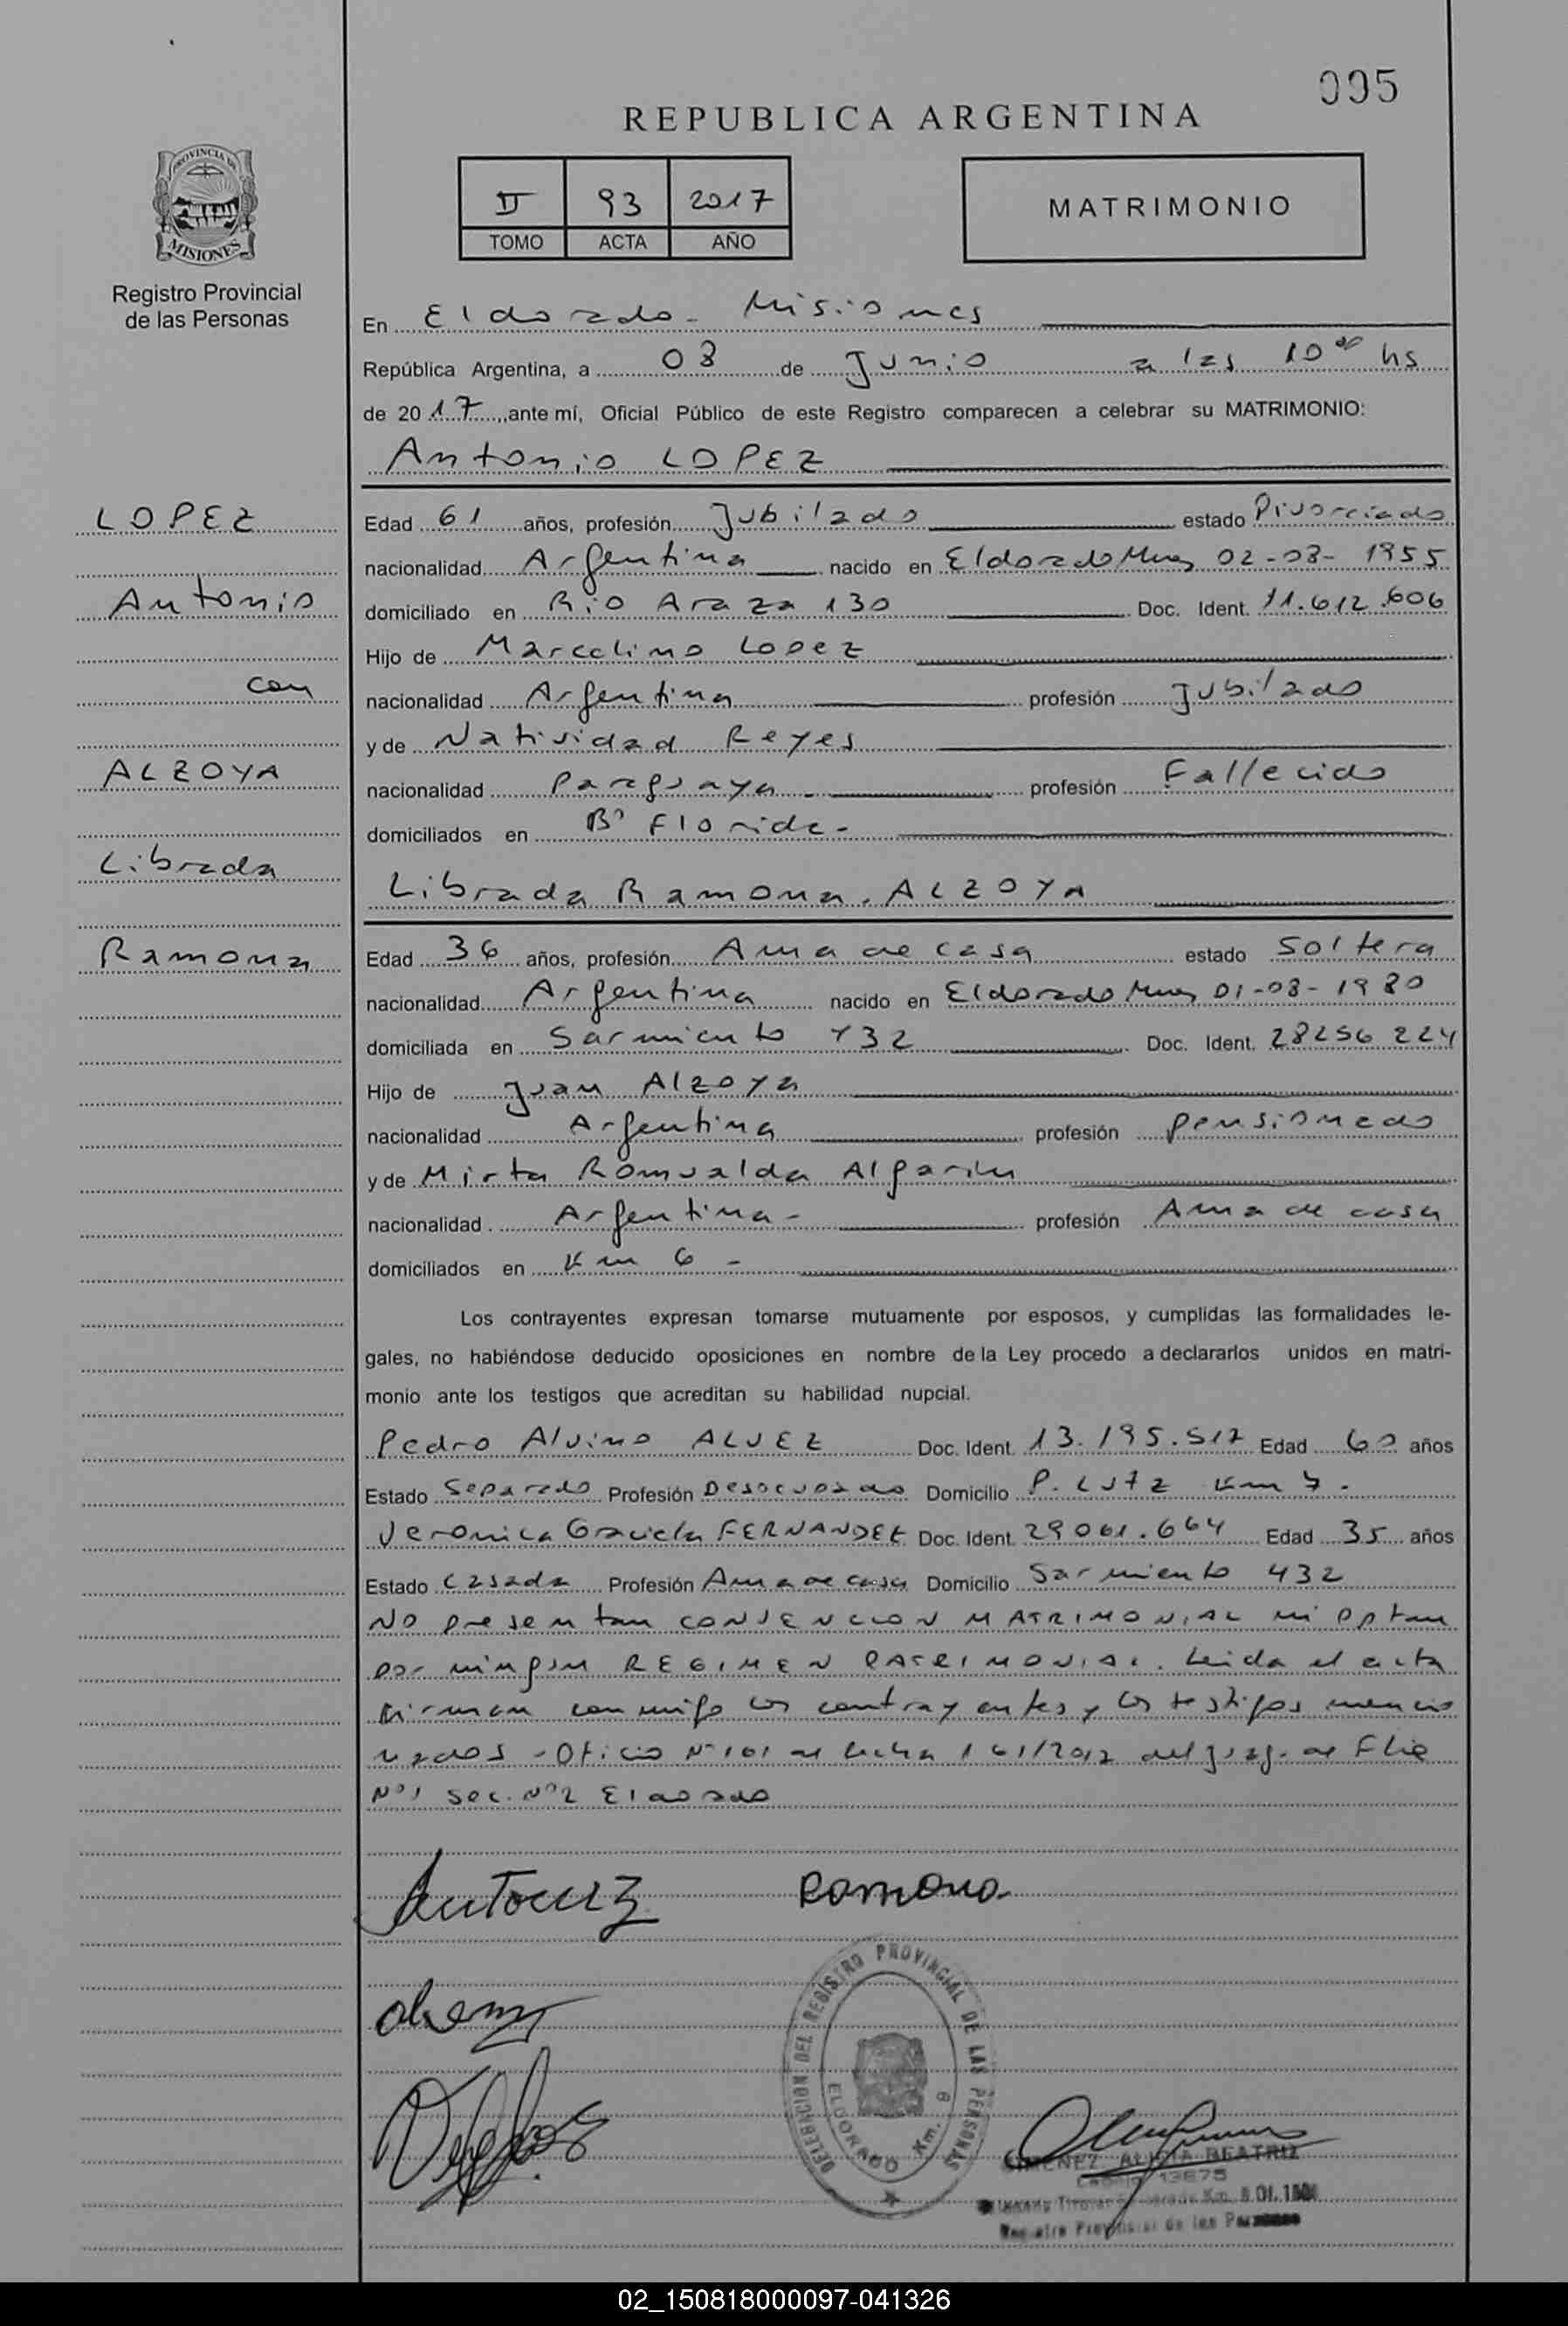 095
REPUBLICA ARGENTINA
PROVINCIA DE
MISIONES
Registro Provincial
de las Personas
II 93 2017
TOMO ACTA AÑO
MATRIMONIO
En Eldorado - Misiones
República Argentina, a 03 de Junio a las 10 hs
de 2017, ante mí, Oficial Público de este Registro comparecen a celebrar su MATRIMONIO:
Antonio LOPEZ
LOPEZ
Antonio
con
ALZOYA
Librada
Ramona
Edad 61 años, profesión Jubilado estado Divorciado
nacionalidad Argentina nacido en Eldorado Mnes 02-08-1955
domiciliado en Rio Araza 130 Doc. Ident. 11.612.606
Hijo de Marcelino Lopez
nacionalidad Argentina profesión Jubilado
y de Natividad Reyes
nacionalidad Paraguaya - profesión Fallecido
domiciliados en Bº Florida -
Librada Ramona ALZOYA
Edad 36 años, profesión Ama de casa estado Soltera
nacionalidad Argentina nacido en Eldorado Mnes 01-08-1980
domiciliada en Sarmiento 432 Doc. Ident. 28256 224
Hijo de Juan Alzoya
nacionalidad Argentina profesión pensionado
y de Mirta Romualda Algarin
nacionalidad Argentina - profesión Ama de casa
domiciliados en Km 6 -
Los contrayentes expresan tomarse mutuamente por esposos, y cumplidas las formalidades le-
gales, no habiéndose deducido oposiciones en nombre de la Ley procedo a declararlos unidos en matri-
monio ante los testigos que acreditan su habilidad nupcial.
Pedro Alvino ALVEZ Doc. Ident. 13.195.517 Edad 60 años
Estado Separado Profesión Desocupado Domicilio P. Lutz Km 7.
Veronica Graciela FERNANDEZ Doc. Ident. 29061.664 Edad 35 años
Estado Casada Profesión Ama de casa Domicilio Sarmiento 432
No presentan CONVENCION MATRIMONIAL ni optan
por ningun REGIMEN PATRIMONIAL. Leida el acta
firman conmigo los contrayentes y los testigos mencio
nados - Oficio Nº 101 de fecha 161/2012 del Juzg. de Flia
Nº1 Sec. Nº2 Eldorado
Ramona
DELEGACION DEL REGISTRO PROVINCIAL DE LAS PERSONAS
ELDORADO Km. 9
GIMENEZ, ALICIA BEATRIZ
Registro Provincial de las Personas
02_150818000097-041326